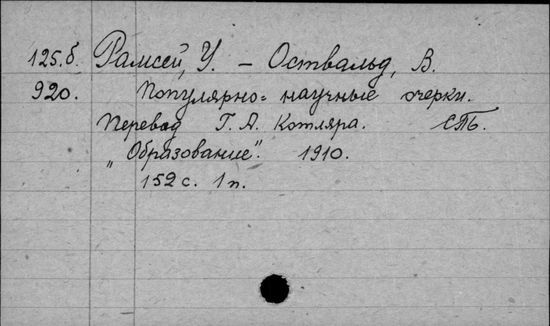 125.б. Рамсей, У. – Оствальд, В.
920. Популярно-научные очерки.
Перевод Г. А. Котляра. СПб.
„Образование". 1910.
152 с. 1 п.